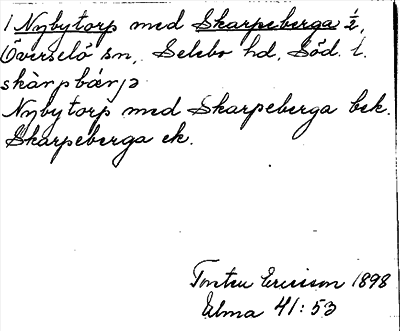 1 Nybytorp med Skarpeberga ½,
Överselö sn, Selebo hd, Söd. l.
skàrpbárjə
Nybytorp med Skarpeberga bek.
Skarpeberga ek.
Ericson 1898
Elma 41:53